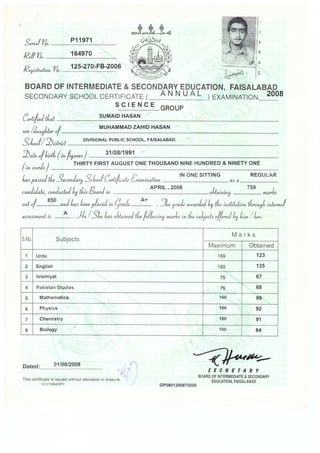 Serial No. P11971
Roll No. 164970
Registration No. 125-270-FB-2006
BOARD OF INTERMEDIATE & SECONDARY EDUCATION, FAISALABAD
SECONDARY SCHOOL CERTIFICATE ( ANNUAL ) EXAMINATION, 2008
SCIENCE GROUP
Certified that SUMAID HASAN
son/daughter of MUHAMMAD ZAHID HASAN
School / District DIVISIONAL PUBLIC SCHOOL, FAISALABAD.
Date of birth (in figures) 31/08/1991
(in words) THIRTY FIRST AUGUST ONE THOUSAND NINE HUNDRED & NINETY ONE
has passed the Secondary School Certificate Examination IN ONE SITTING as a REGULAR
candidate, conducted by this Board in APRIL , 2008 obtaining 759 marks
out of 850 and has been placed in Grade A+ . The grade awarded by the institution through internal
assessment is A . He / She has obtained the following marks in the subjects offered by him / her.
S.No. Subjects Marks
Maximum Obtained
1 Urdu 150 123
2 English 150 135
3 Islamiyat 75 67
4 Pakistan Studies 75 68
5 Mathematics 100 99
6 Physics 100 92
7 Chemistry 100 91
8 Biology 100 84
Dated: 01/08/2008
SECRETARY
BOARD OF INTERMEDIATE & SECONDARY
EDUCATION, FAISALABAD
This certificate is issued without alteration or erasure.